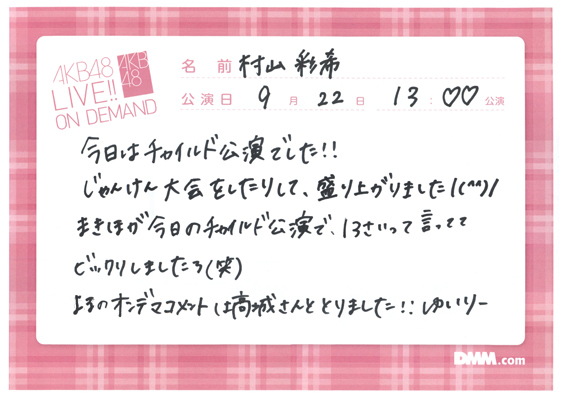 AKB48
LIVE!!
ON DEMAND
AKB
48
名 前 村山 彩希
公演日 9 月 22 日 13:♡♡ 公演
今日はチャイルド公演でした!!
じゃんけん大会をしたりして、盛り上がりました!(^^)!
まきほが今日のチャイルド公演で、13さいって言ってて
ビックリしましたろ(笑)
よるのオンデマコメントは高城さんととりました!! ゆいりー
DMM.com